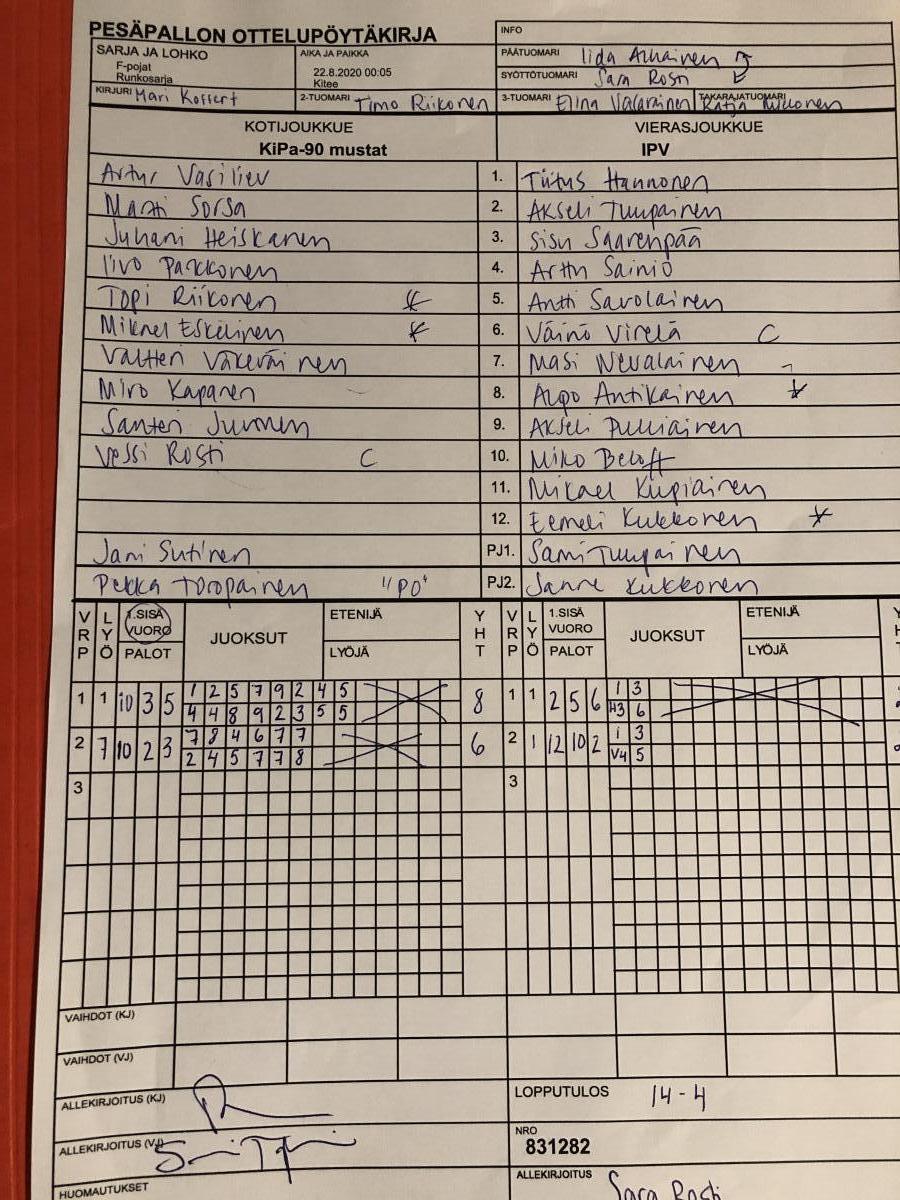 PESÄPALLON OTTELUPÖYTÄKIRJA
INFO
SARJA JA LOHKO
F-pojat
Runkosarja
AIKA JA PAIKKA
22.8.2020 00:05
Kitee
PÄÄTUOMARI Iida
SYÖTTÖTUOMARI Sara Rosti
KIRJURI Mari
2-TUOMARI Timo Riikonen
3-TUOMARI Elina
TAKARAJATUOMARI Katja
KOTIJOUKKUE
KiPa-90 mustat
VIERASJOUKKUE
IPV
Artur Vasiliev 1. Tiitus Hannonen
Matti Sorsa 2. Akseli Tuupainen
Juhani Heiskanen 3. Sisu Saarenpää
Iivo Pakkonen 4. Arttu Sainio
Topi Riikonen * 5. Antti Savolainen
Mikael Eskelinen * 6. Väinö Virelä C
Valtteri Väkeväinen 7. Masi Nevalainen
Miro Kapanen 8. Aapo Antikainen *
Santeri Juvonen 9. Akseli Pulliainen
Vessi Rosti C 10. Miko Beloff
11. Mikael Kiipiainen
12. Eemeli Kukkonen *
Jani Sutinen PJ1. Sami Tuupainen
Pekka Toropainen "PO" PJ2. Janne Kukkonen
VRP LYÖ 1.SISÄ VUORO PALOT JUOKSUT ETENIJÄ LYÖJÄ YHT VRP LYÖ 1.SISÄ VUORO PALOT JUOKSUT ETENIJÄ LYÖJÄ
1 1 10 3 5 1 2 5 7 9 2 4 5 8 1 1 2 5 6 1 3
4 4 8 9 2 3 5 5 H3 6
2 7 10 2 3 7 8 4 6 7 7 6 2 1 12 10 2 1 3
2 4 5 7 7 8 V4 5
3 3
VAIHDOT (KJ)
VAIHDOT (VJ)
ALLEKIRJOITUS (KJ)
LOPPUTULOS 14-4
ALLEKIRJOITUS (VJ)
NRO
831282
HUOMAUTUKSET
ALLEKIRJOITUS Sara Rosti